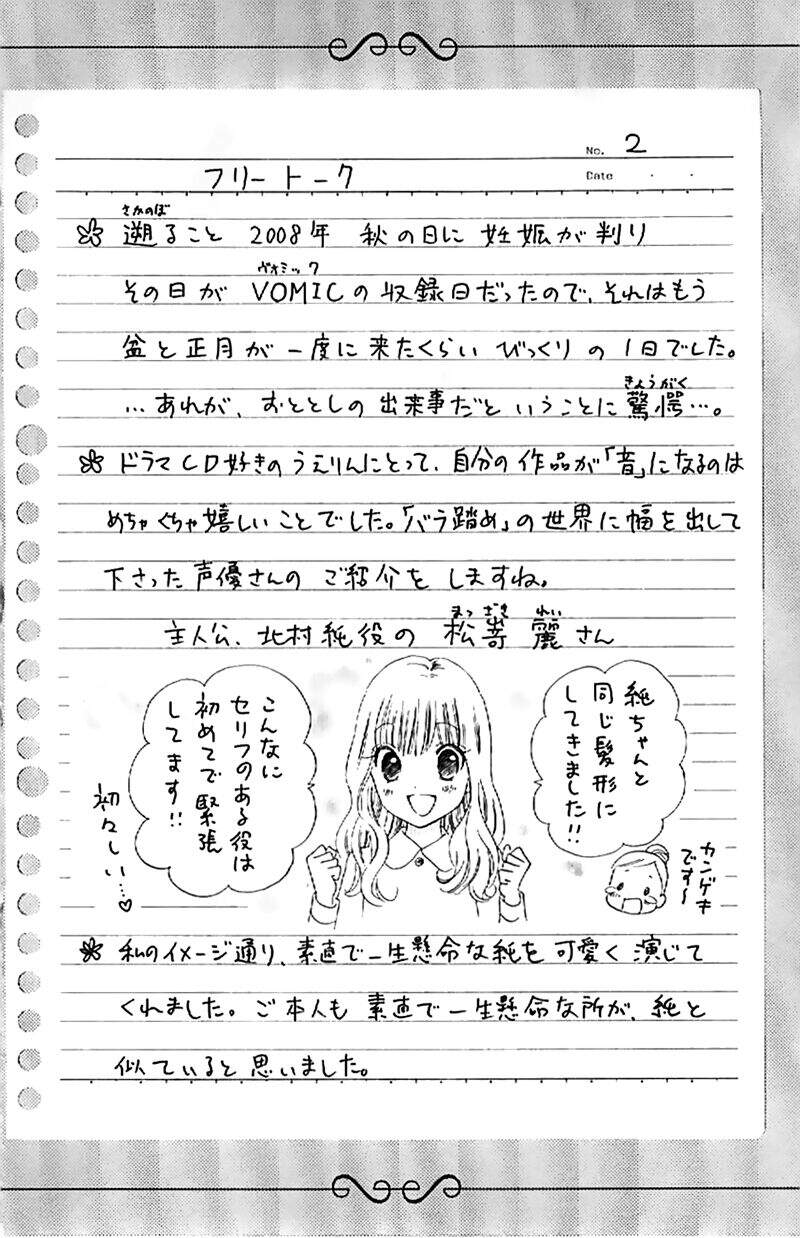 No. 2
Date
フリートーク
さかのぼ
遡ること 2008年 秋の日に妊娠が判り
ヴォミック
その日が VOMICの収録日だったので、それはもう
盆と正月が一度に来たくらい びっくりの1日でした。
きょうがく
…あれが、おととしの出来事だということに驚愕…。
ドラマCD好きのうえりんにとって、自分の作品が「音」になるのは
めちゃくちゃ嬉しいことでした。「バラ踏め」の世界に幅を出して
下さった声優さんの ご紹介を しますね。
まつざき れい
主人公、北村純役の 松嵜 麗さん
純ちゃんと
同じ髪形に
してきました!!
カンゲキ
です〜
こんなに
セリフのある役は
初めてで緊張
してます!!
初々しい…♡
私のイメージ通り、素直で一生懸命な純を可愛く演じて
くれました。ご本人も 素直で一生懸命な所が、純と
似ていると思いました。